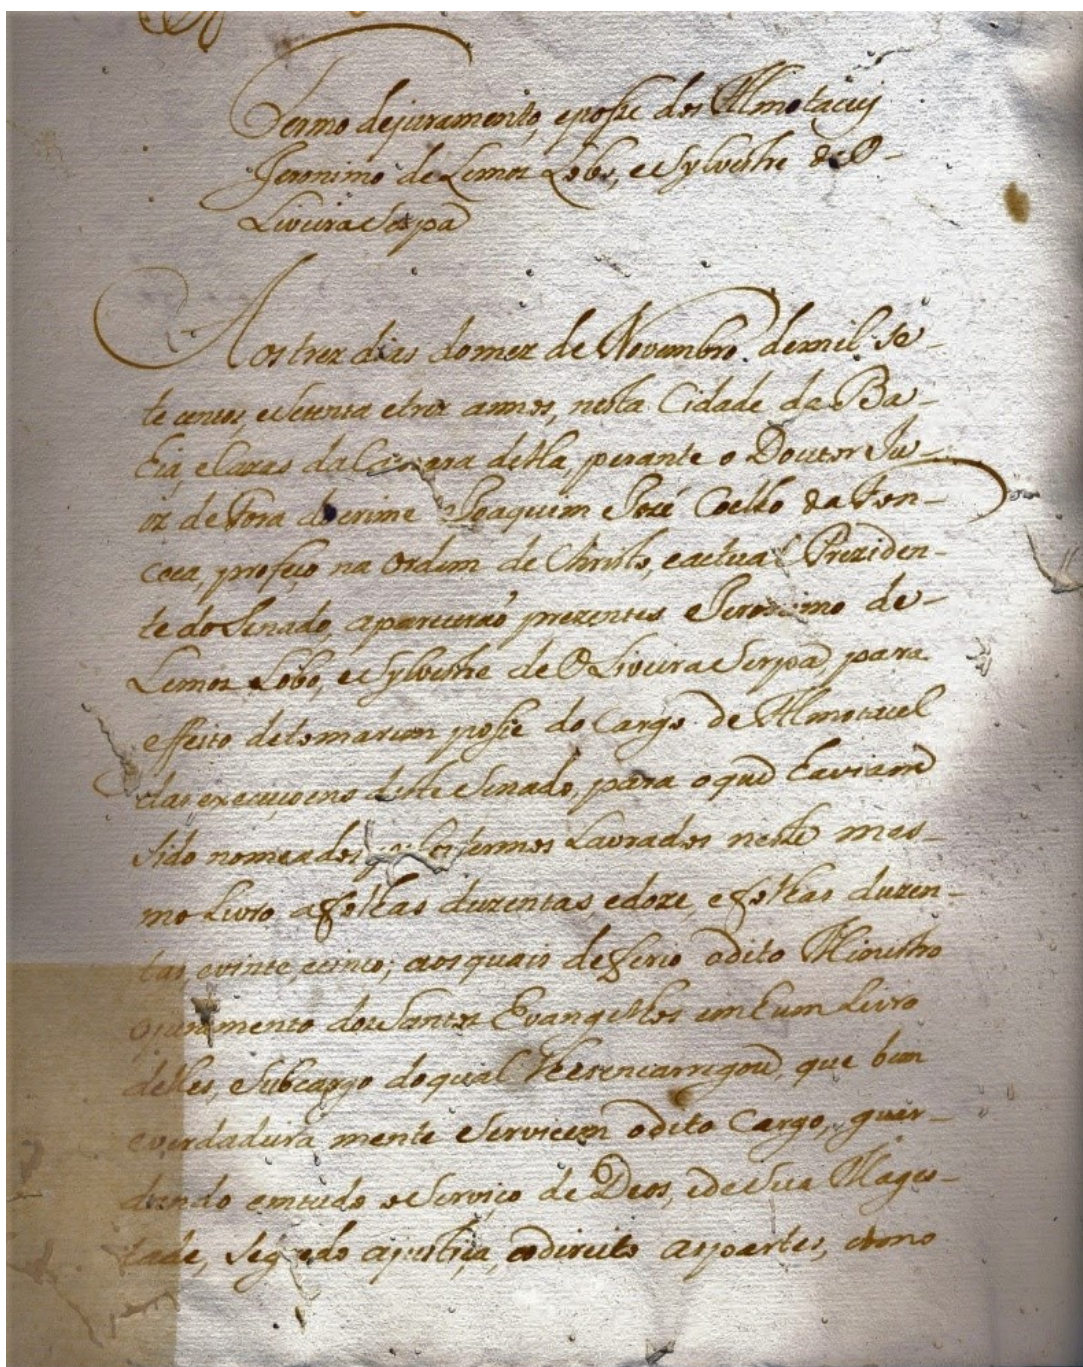 Termo dejuramento, eposse dos Almotaceis
Jeronimo de Lemos Lobo, eSylvestre de O-
Liveira Serpa
Aos trez dias domez de Novembro. demil Se-
te centos, eSetenta etrez annos, nesta Cidade da Ba-
hia, eCazas daCamara della, perante o Doutor Ju-
iz de Fora do crime Joaquim José Coelho da Fon-
ceca, profeço na Ordem de Christo, eactual Preziden-
te do Senado, aparecerão prezentes Jeronimo de-
Lemos Lobo, eSylvestre de OLiveira Serpa, para
effeito detomarem posse do Cargo de Almotacel
das execuçoens deste Senado, para oque haviam
Sido nomeados termos Lavrados neste mes-
mo Livro afolhas duzentas edoze, efolhas duzen-
tas, evinte, ecinco; aosquais deferio odito Ministro
ojuramento dos Santos Evangelhos emhum Livro
delles, eSubcargo doqual lhesencarregou, que bem
everdadeira mente Servicem odito Cargo, guar-
dando emtudo oServiço de Deos, edeSua Mages-
tade, Segredo ajustiça, eodireito aspartes, como